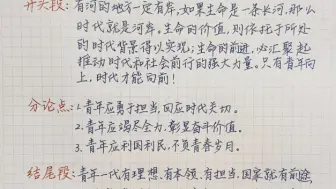 开头段：有河的地不一定有库，如果生命是一条长河，那么
时代就是河库。生命的价值，则依托于所处
的时代背景得以实现；生命的前进，必汇聚起
推动时代和社会前行的强大力量。只有青年向
上，时代才能向前！
分论点：1.青年应勇于担当，回应时代关切。
2.青年应竭尽全力，彰显奋斗价值。
3.青年应利国利民，不负青春岁月。
结尾段：青年一代有理想、有本领、有担当，国家就有前途，